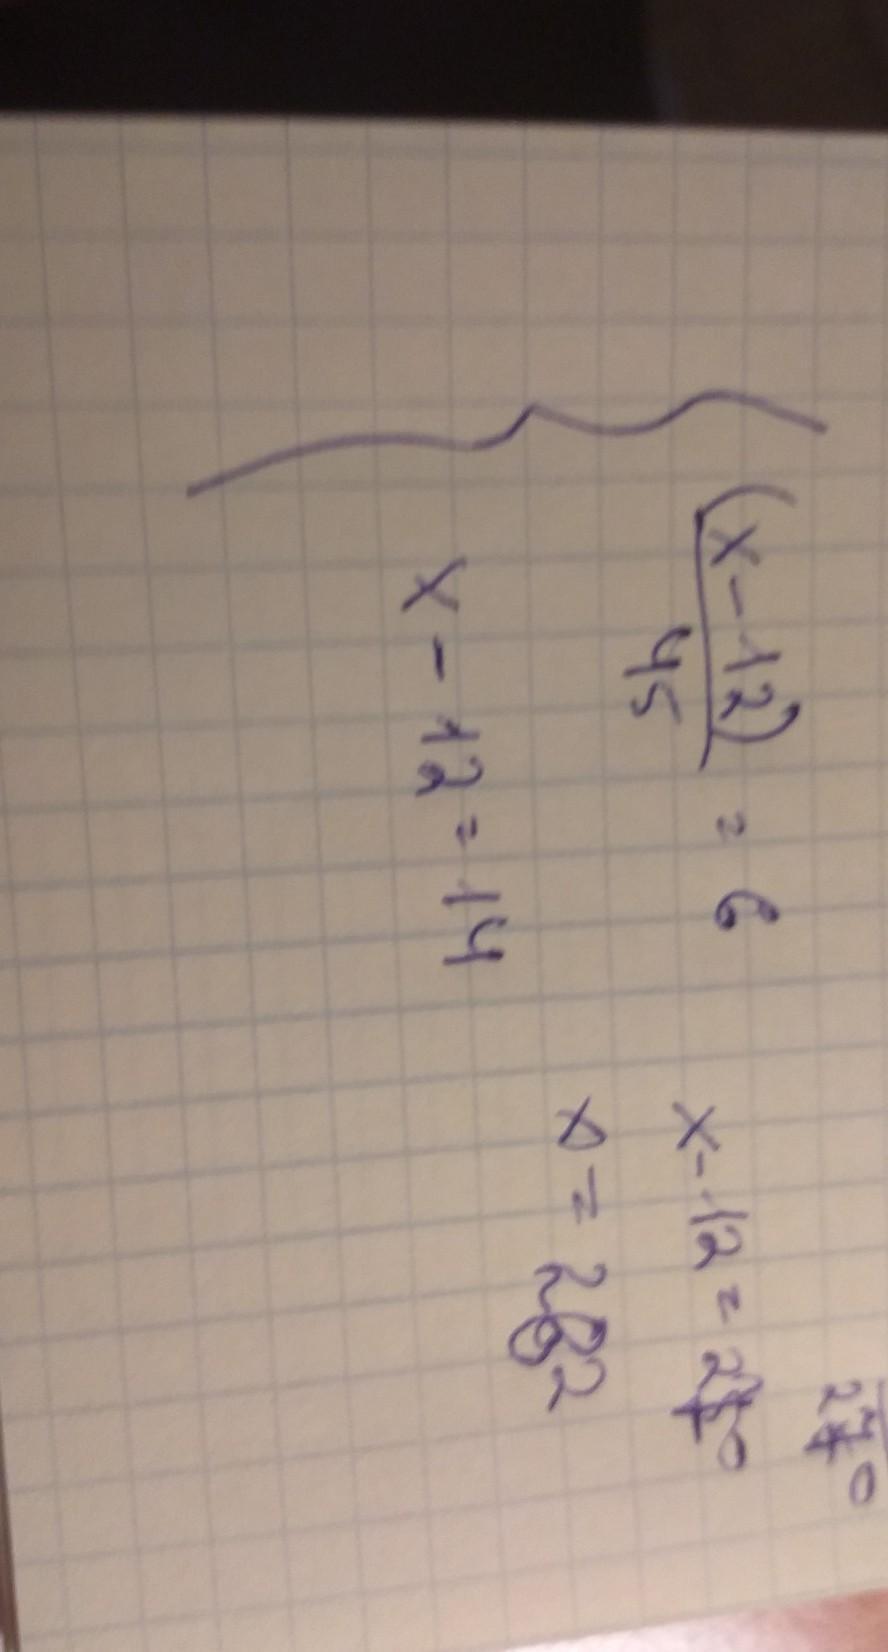 270
(x - 12) = 6
45
x - 12 = 270
x = 282
x - 12 = 14